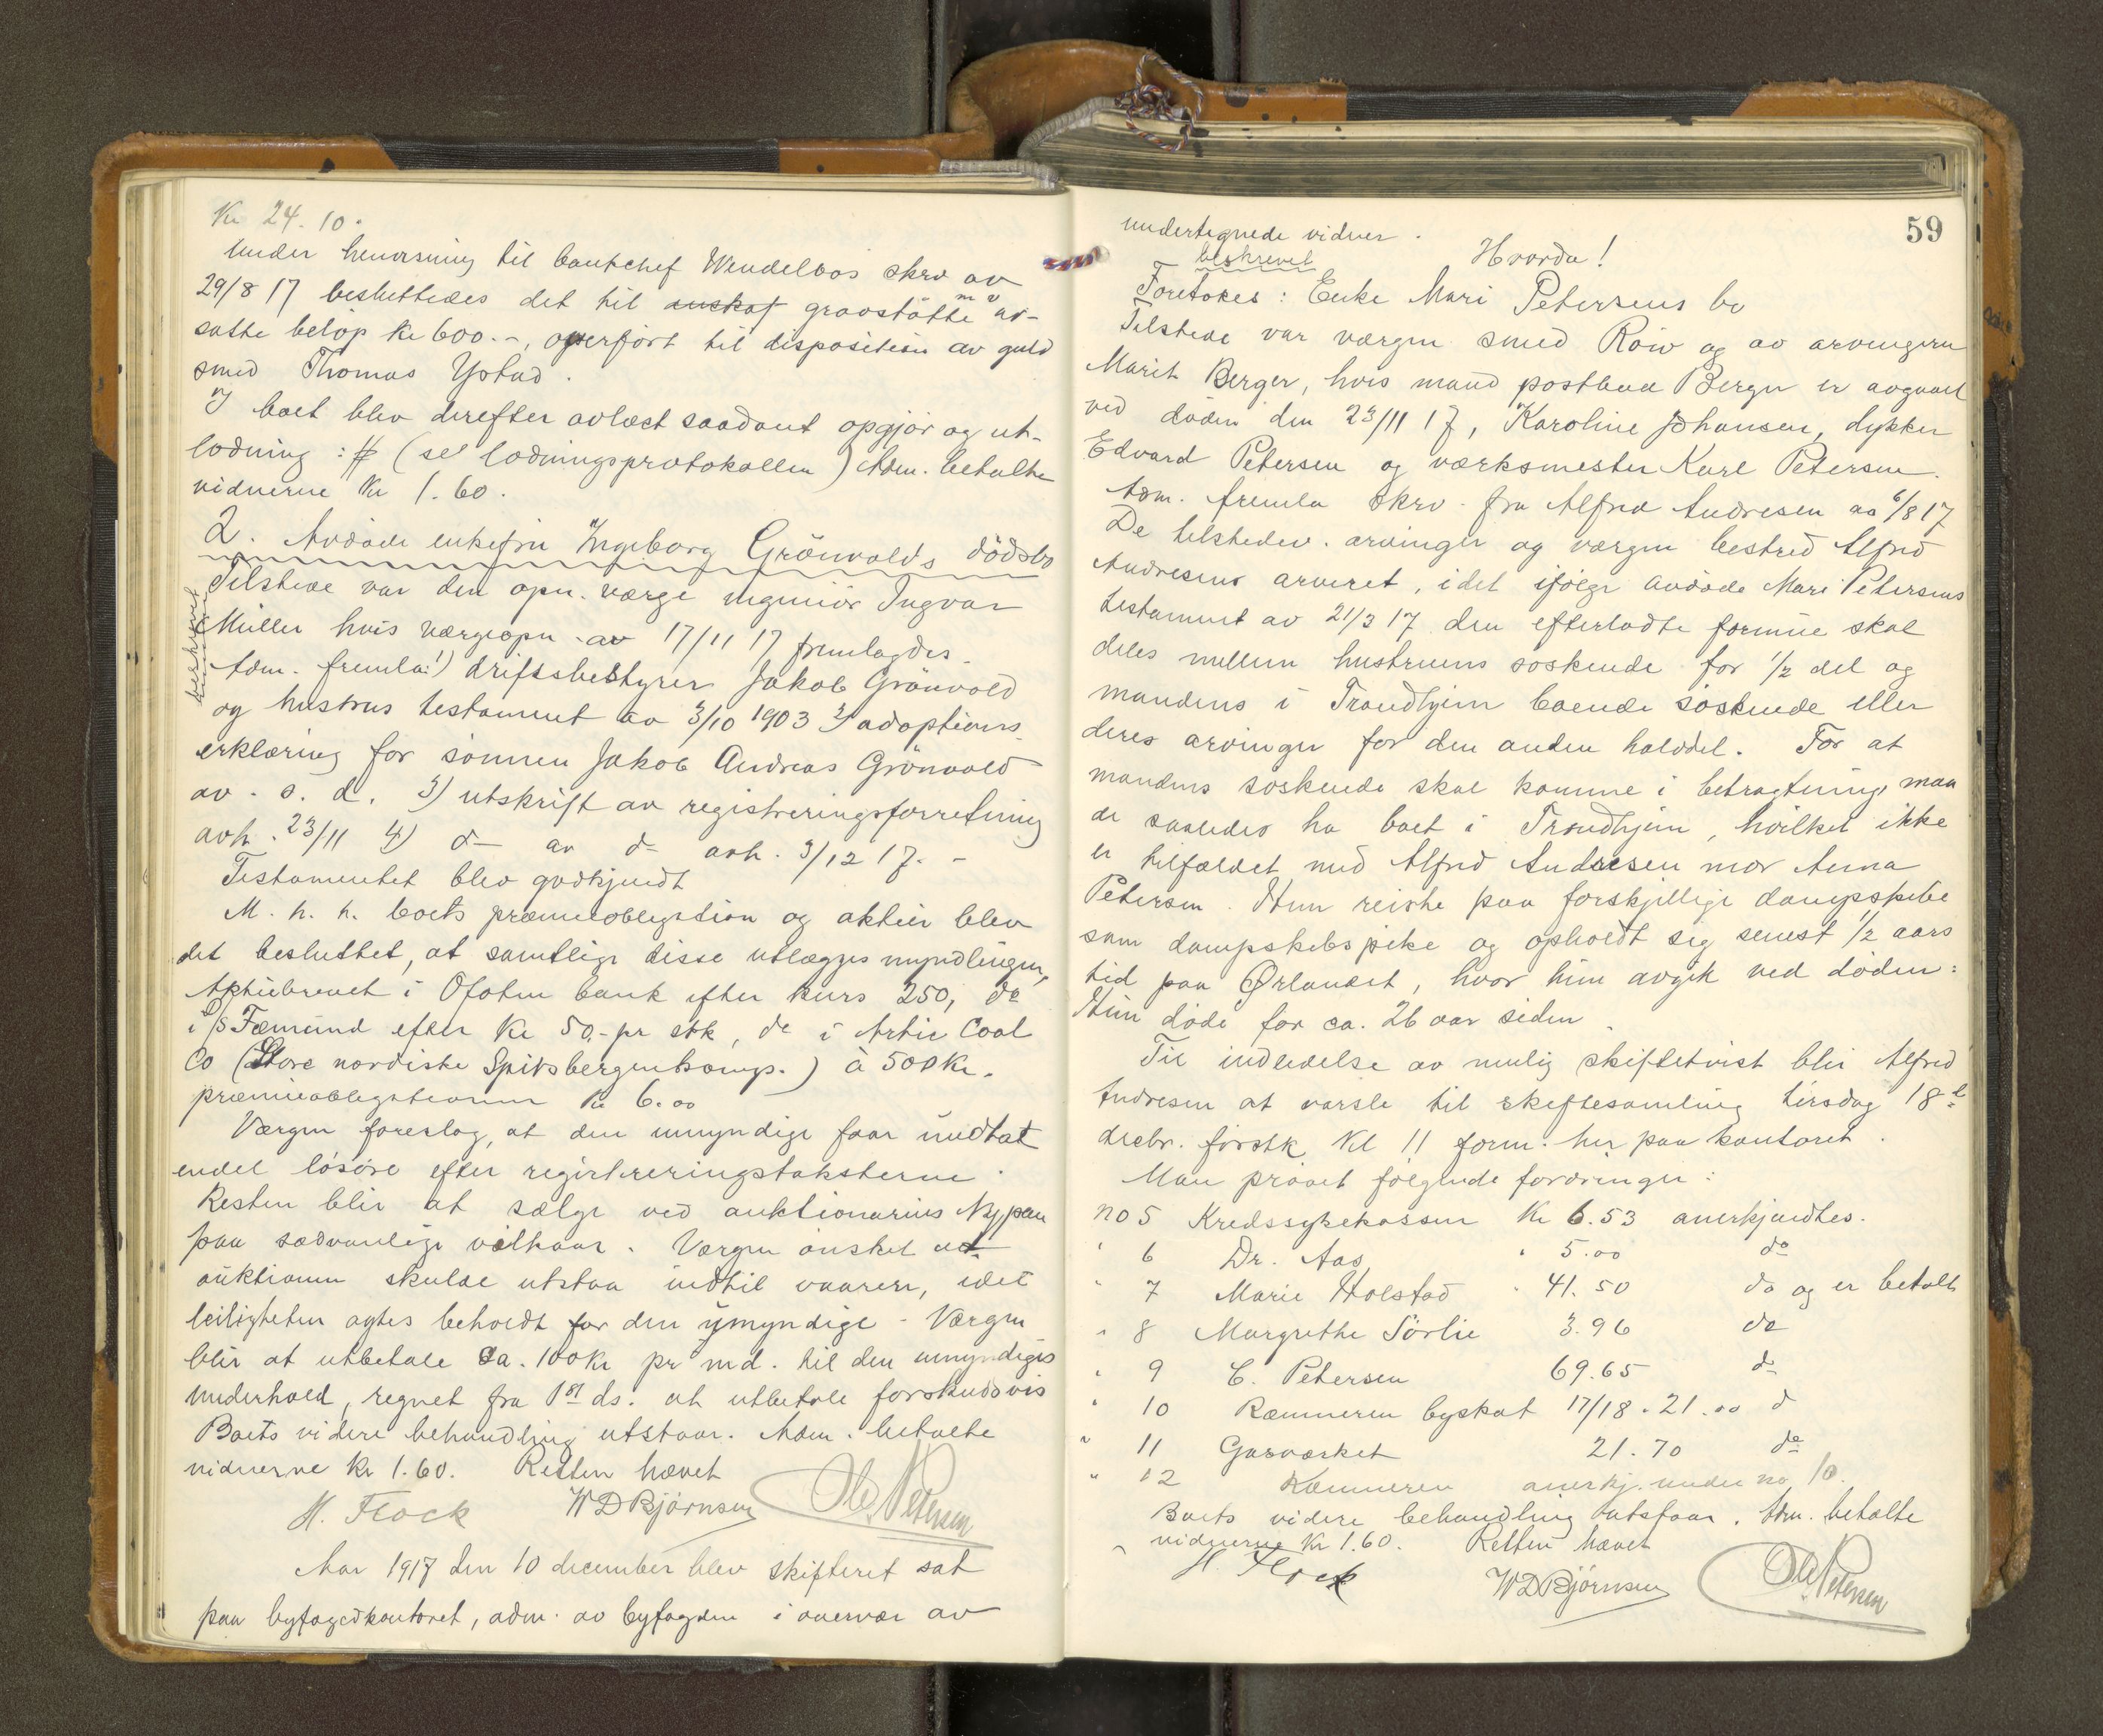 Kr 24.10.
Under henvisning til bankchef Wendelbos skrv av
29/8 17 besluttedes det til anskaf gravstötte m v av-
satte belöp kr 600.-, overfört til disposition av guld
smed Thomas Ystad.
I boet blev derefter avlæst saadant opgjör og ut-
lodning: # (se lodningsprotokollen) Adm. betalte
vidnerne Kr 1.60.
2. Avdöde enkefru Ingeborg Grönvolds dödsbo
beskrevet
Tilstede var den opn. værge ingeniör Ingvar
Müller hvis værgeopn. av 17/11 17 fremlagdes.
Adm. fremla: 1) driftsbestyrer Jakob Grönvold
og hustrus testament av 3/10 1903 2) adoptions-
erklæring for sönnen Jakob Andreas Grönvold
av s. d. 3) utskrift av registreringsforretning
avh. 23/11 4) do av do avh. 3/12 17. -
Testamentet blev godkjendt
M. h. h. boets præmieobligation og aktier blev
det besluttet, at samtlige disse utlægges myndlingen,
Aktiebrevet i Ofoten bank efter kurs 250, do
i A/S Fæmund efter Kr 50,- pr stk, do i Artic Coal
Co (Store nordiske Spitsbergenkomp.) à 500 Kr.
præmieobligationen Kr 6.00
Værgen foreslog, at den umyndige faar undtat
endel lösöre efter registreringstaksterne.
Resten blir at sælge ved auktionarius Nypan
paa sædvanlige vilkaar. Værgen önsket at
auktionen skulde utstaa indtil vaaren, idet
leiligheten agtes beholdt for den umyndige - Værgen
blir at utbetale ca. 100 Kr pr md. til den umyndiges
underhold, regnet fra 1st ds. at utbetale forskudsvis
Boets videre behandling utstaar. Adm. betalte
vidnerne Kr 1.60. Retten hævet
H. Flock WDBjörnsen Ole Petersen
Aar 1917 den 10 december blev skifteret sat
paa byfogedkontoret, adm. av byfogden i overvær av
59
undertegnede vidner.
Hvorda!
beskrevet
Foretokes: Enke Mari Petersens bo
Tilstede var værgen smed Röiv og av arvingerne
Marit Berger, hvis mand postbud Berger er avgaaet
ved döden den 23/11 17, Karoline Johansen, dykker
Edvard Petersen og værksmester Karl Petersen.
Adm. fremla skrv. fra Alfred Andresen av 6/8 17
De tilstedev. arvinger og værgen bestred Alfred
Andresens arveret, idet ifölge avdöde Mari Petersens
testament av 21/3 17 den efterladte formue skal
deles mellem hustruens söskende for 1/2 del og
mandens i Trondhjem boende söskende eller
deres arvinger for den anden halvdel. For at
mandens söskende skal komme i betragtning, maa
de saaledes ha boet i Trondhjem, hvilket ikke
er tilfældet med Alfred Andresen mor Anna
Petersen. Hun reiste paa forskjellige dampskibe
som dampskibspike og opholdt sig senest 1/2 aars
tid paa Ørlandet, hvor hun avgik ved döden:
Hun döde for ca. 26 aar siden.
Til indledelse av mulig skiftetvist blir Alfred
Andresen at varsle til skiftesamling tirsdag 18de
decbr. förstk. Kl 11 form. her paa kontoret.
Man prövet fölgende fordringer:
no 5 Kredssykekassen Kr 6.53 anerkjendtes.
" 6 Dr. Aas " 5.00 do
" 7 Marie Holstad " 41.50 do og er betalt
" 8 Margrethe Sörlie 3.96 do
" 9 C. Petersen 69.65 do
" 10 Kæmneren byskat 17/18 " 21.00 do
" 11 Gasværket 21.70 do
" 12 Kæmneren anerkj. under no 10.
Boets videre behandling utstaar. Adm. betalte
vidnerne Kr 1.60. Retten hævet
H. Flock WDBjörnsen Ole Petersen